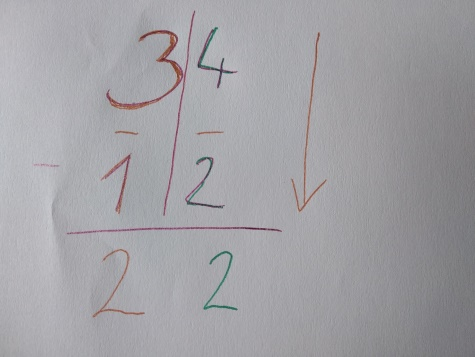 3 | 4
— —
- 1 | 2
2 2